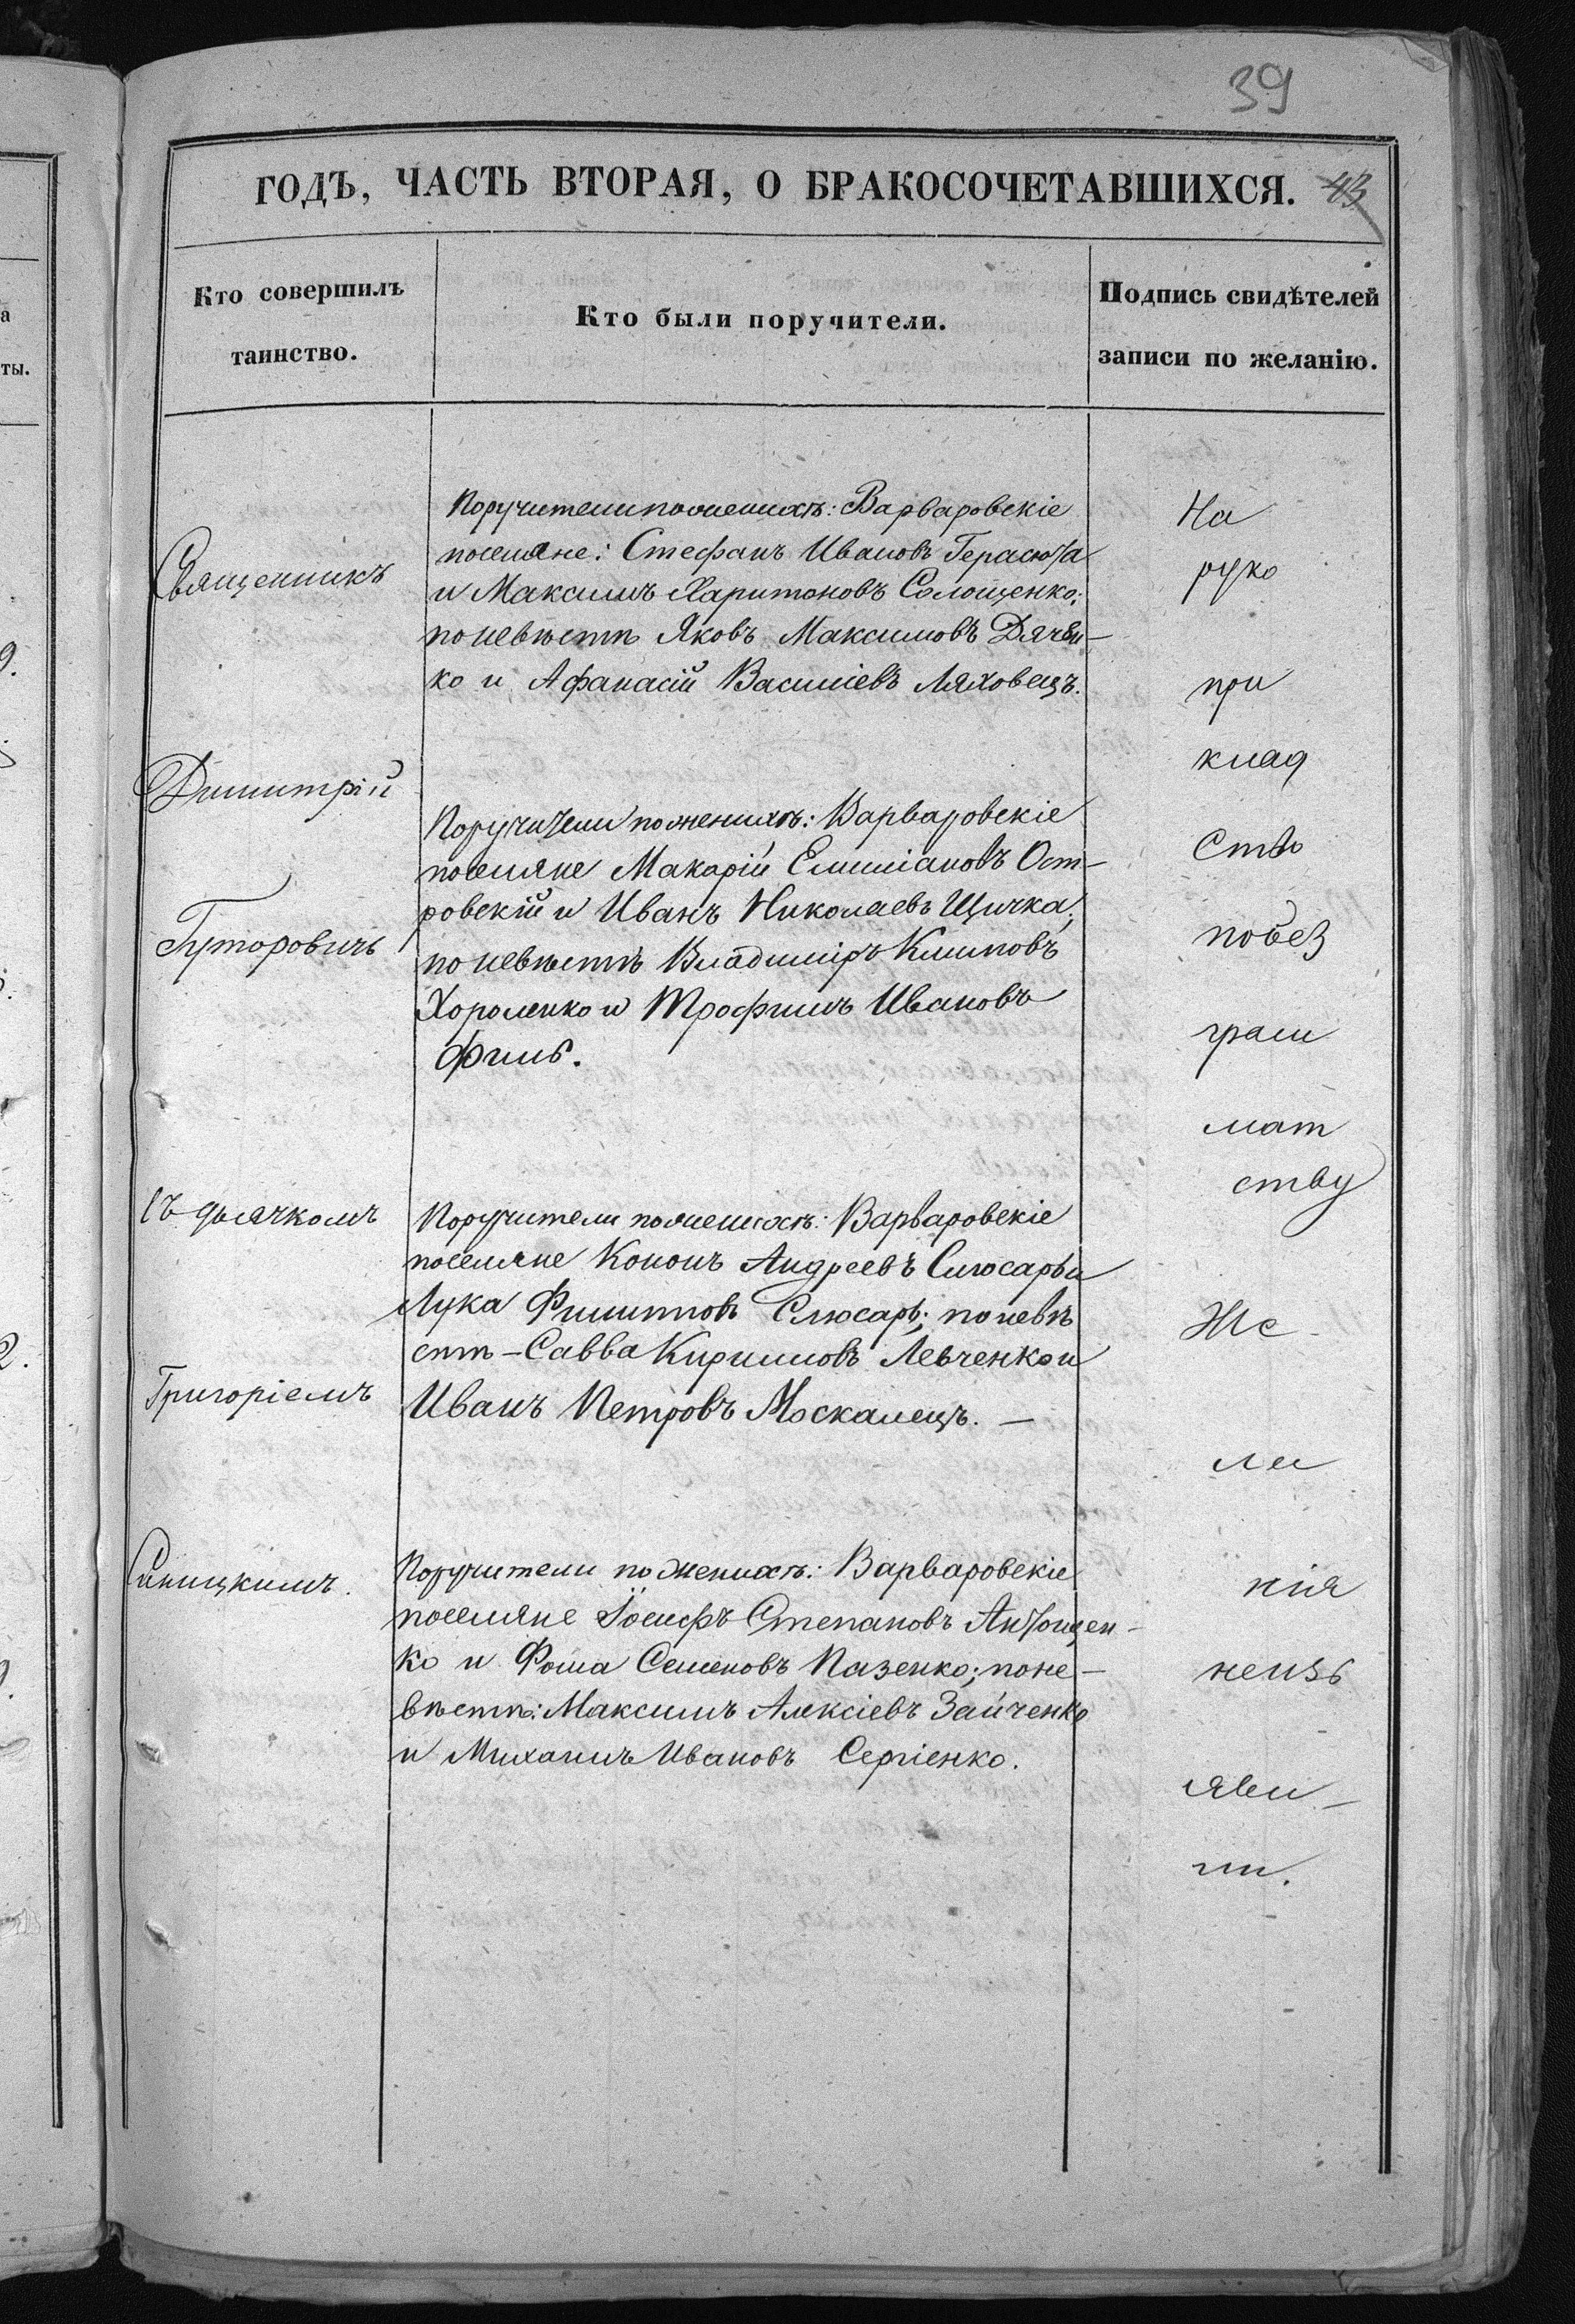 39
ГОДЪ, ЧАСТЬ ВТОРАЯ, О БРАКОСОЧЕТАВШИХСЯ. 43
Кто совершилъ
таинство.
Кто были поручители.
Подпись свидѣтелей
записи по желанію.
Священникъ
Димитрій
Гуторовичъ
Съ дьячкомъ
Григоріемъ
Синицкимъ.
Поручители по женихѣ: Варваровскіе
поселяне: Стефанъ Ивановъ Герасюта
и Максимъ Харитоновъ Солощенко;
по невѣстѣ Яковъ Максимовъ Дячен-
ко и Афанасій Василіевъ Ляховецъ.
Поручители по женихѣ: Варваровскіе
поселяне Макарій Емиліановъ Ост-
ровскій и Иванъ Николаевъ Щичка;
по невѣстѣ Владиміръ Климовъ
Хороленко и Трофимъ Ивановъ
Филь.
Поручители по женихѣ: Варваровскіе
поселяне Кононъ Андреевъ Слюсарь и
Лука Филиповъ Слюсарь; по невѣ
стѣ - Савва Кириловъ Левченко и
Иванъ Петровъ Москалецъ. —
Поручители по женихѣ: Варваровскіе
поселяне Іосифъ Степановъ Антощен-
ко и Фома Семеновъ Пазенко; по не-
вѣстѣ: Максимъ Алексіевъ Зайченко
и Михаилъ Ивановъ Сергіенко.
На
руко
при
клад
ство
по без
грам
мат
ству
Же
ла
нія
неизъ
яви-
ли.